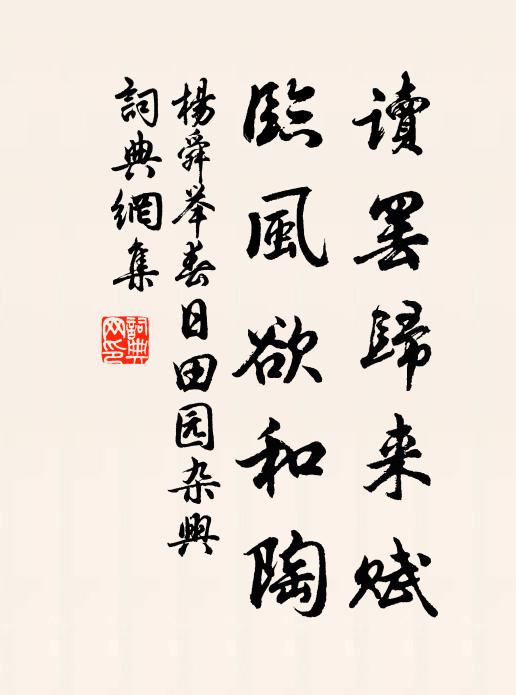 讀罷歸来赋
臨風欲和陶
楊舜举春日田园杂興
詞典網集
詞典网印